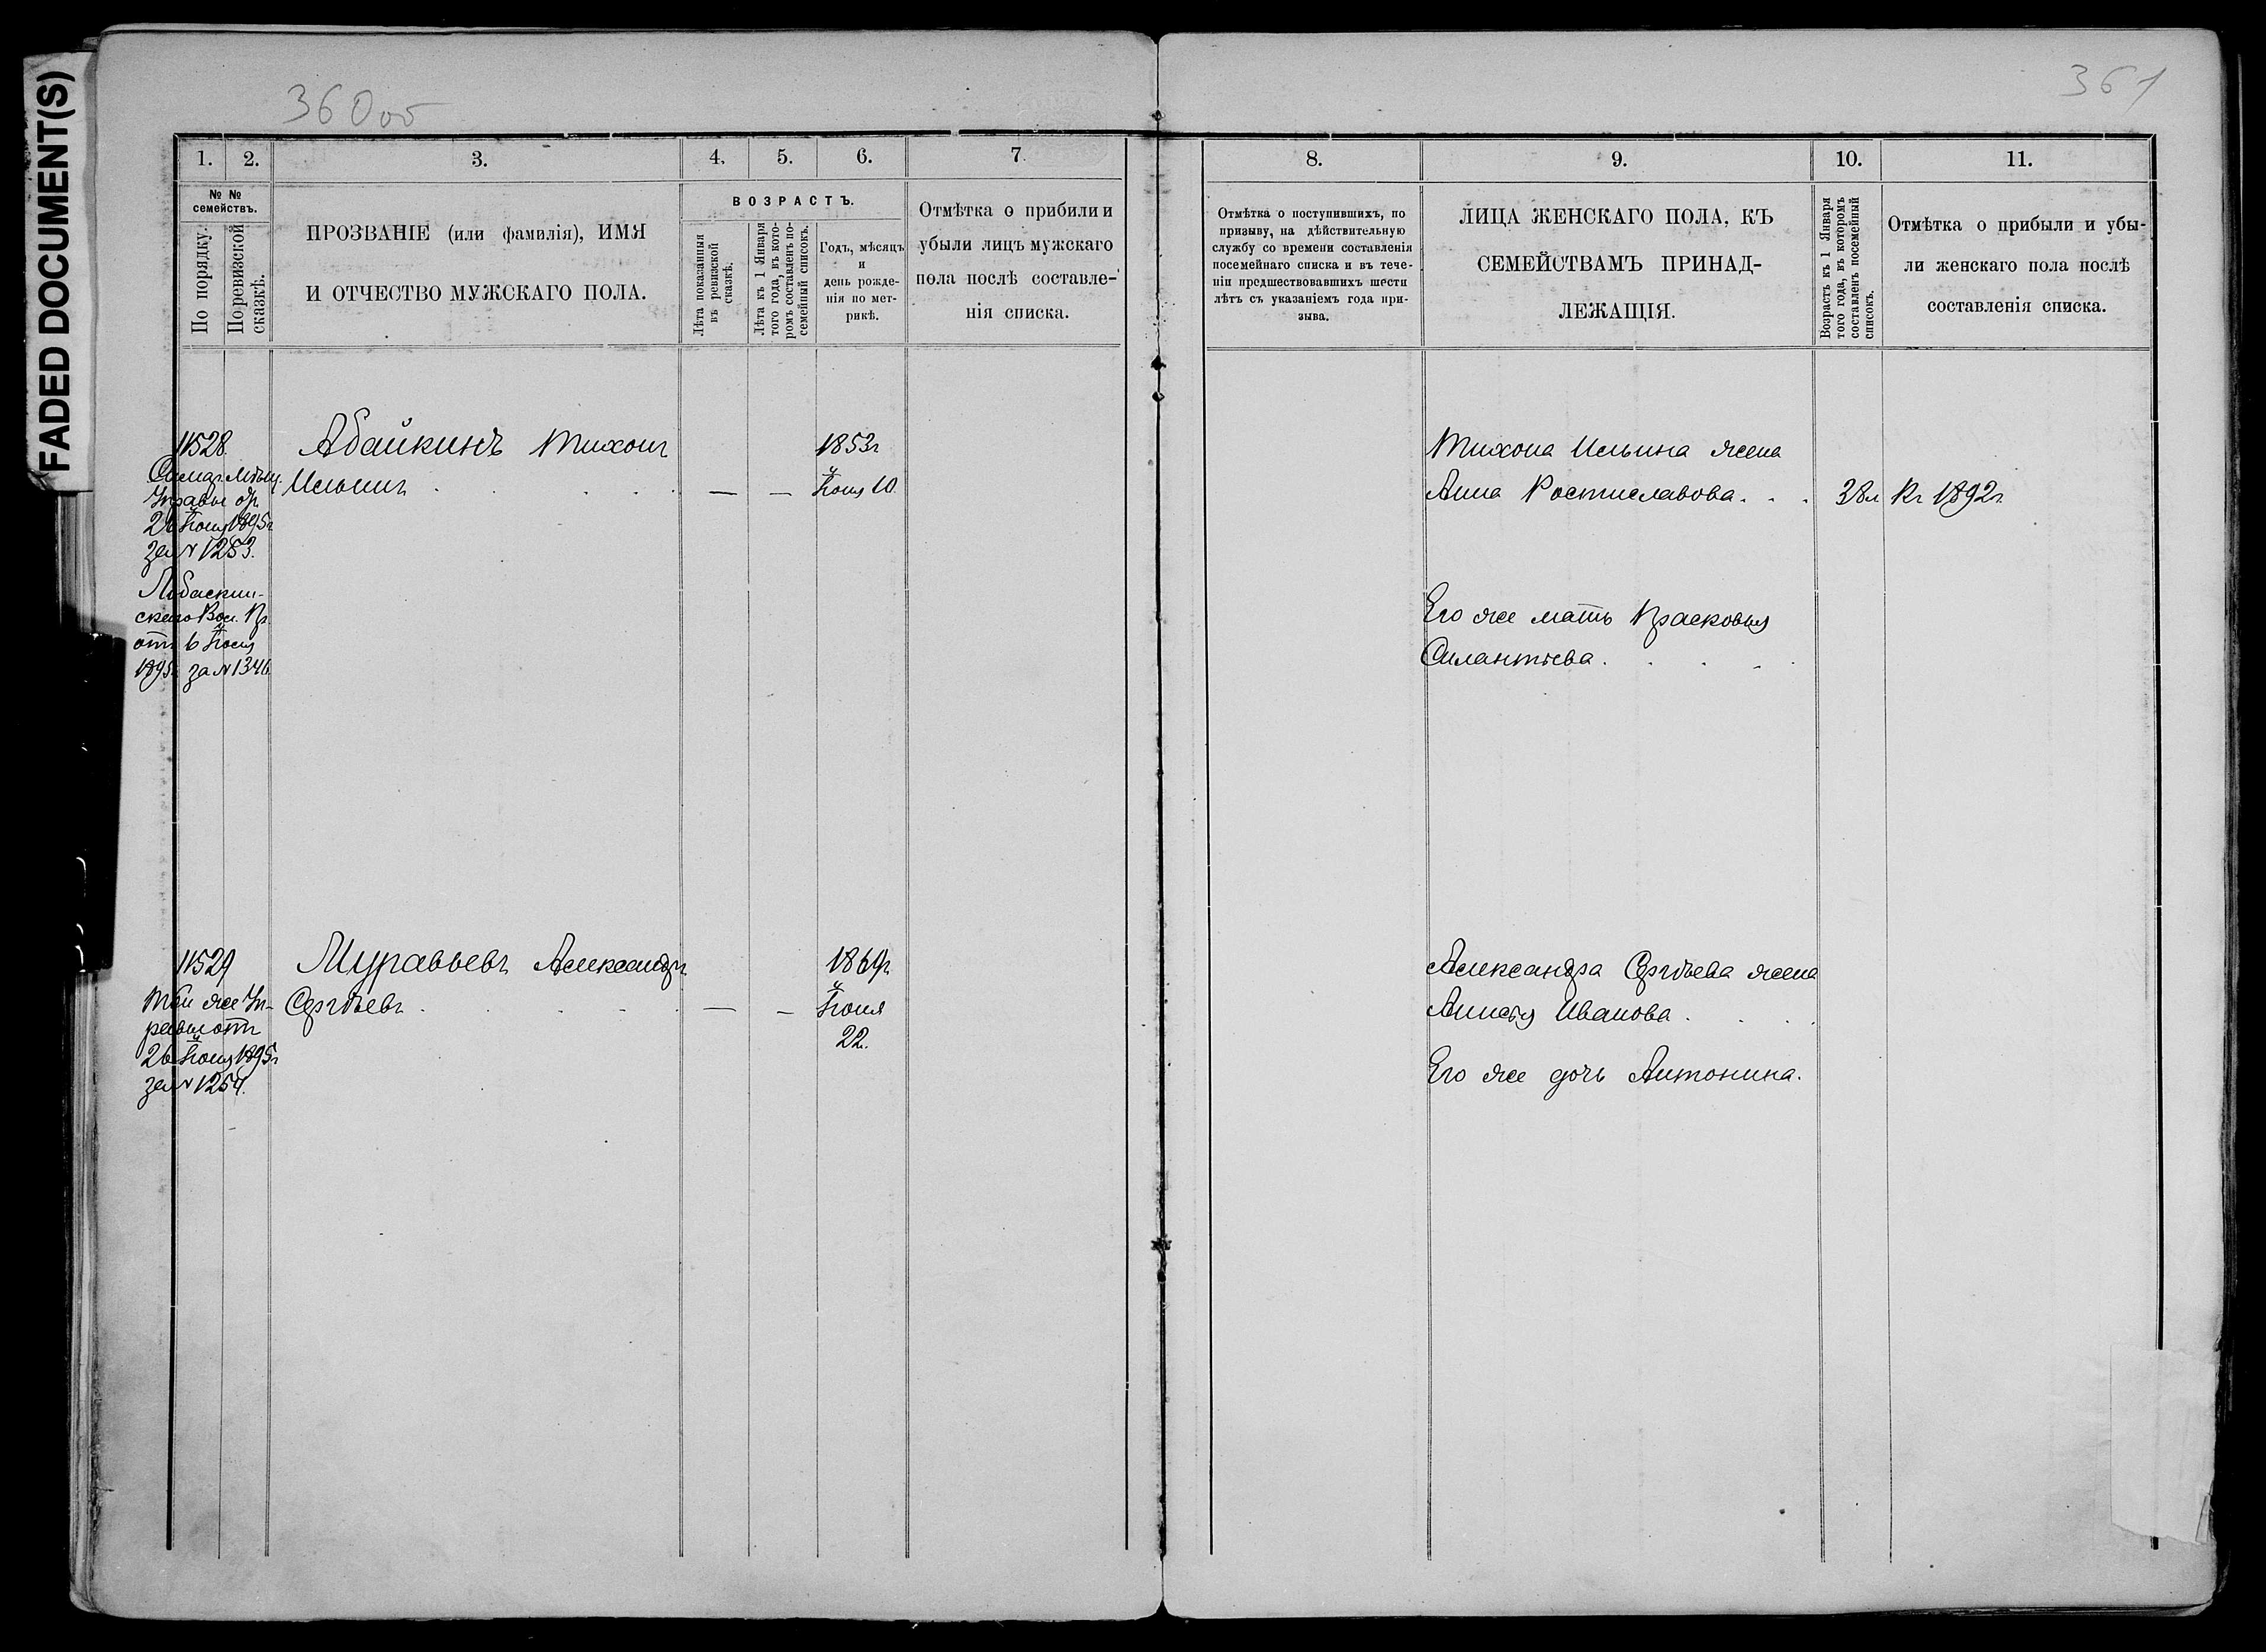 FADED DOCUMENT(S)
360об
361
1.
2.
3.
4.
5.
6.
7.
№ №
семействъ.
По порядку.
По ревизской
сказкѣ.
ПРОЗВАНІЕ (или фамилія), ИМЯ
И ОТЧЕСТВО МУЖСКАГО ПОЛА.
ВОЗРАСТЪ.
Лѣта показанныя
въ ревизской
сказкѣ.
Лѣта къ 1 Января
того года, въ кото-
ромъ составленъ по-
семейный списокъ.
Годъ, мѣсяцъ
и
день рожде-
нія по мет-
рикѣ.
Отмѣтка о прибыли и
убыли лицъ мужскаго
пола послѣ составле-
нія списка.
8.
9.
10.
11.
Отмѣтка о поступившихъ, по
призыву, на дѣйствительную
службу со времени составленія
посемейнаго списка и въ тече-
ніи предшествовавшихъ шести
лѣтъ съ указаніемъ года при-
зыва.
ЛИЦА ЖЕНСКАГО ПОЛА, КЪ
СЕМЕЙСТВАМЪ ПРИНАД-
ЛЕЖАЩІЯ.
Возрастъ къ 1 Января
того года, въ которомъ
составленъ посемейный
списокъ.
Отмѣтка о прибыли и убы-
ли женскаго пола послѣ
составленія списка.
11528.
Самар. Мѣщ.
Управы
26 Іюня 1895г
за № 1253.
скаго Вол. Пр.
отъ 6 Іюня
1895г за № 1346
Абайкинъ Тихонъ
Ильинъ . . . . . — —
1853г
Іюня 10.
Тихона Ильина жена
Анна Ростиславова . . . 38л Къ 1892г
Его же мать Прасковья
Силантьева . . . . .
11529
Той же Уп-
равы отъ
26 Іюня 1895г
за № 1254.
Муравьевъ Александръ
Сергѣевъ . . . . . — —
1869г.
Іюня
22.
Александра Сергѣева жена
Ивановa . . . .
Его же дочь Антонина.